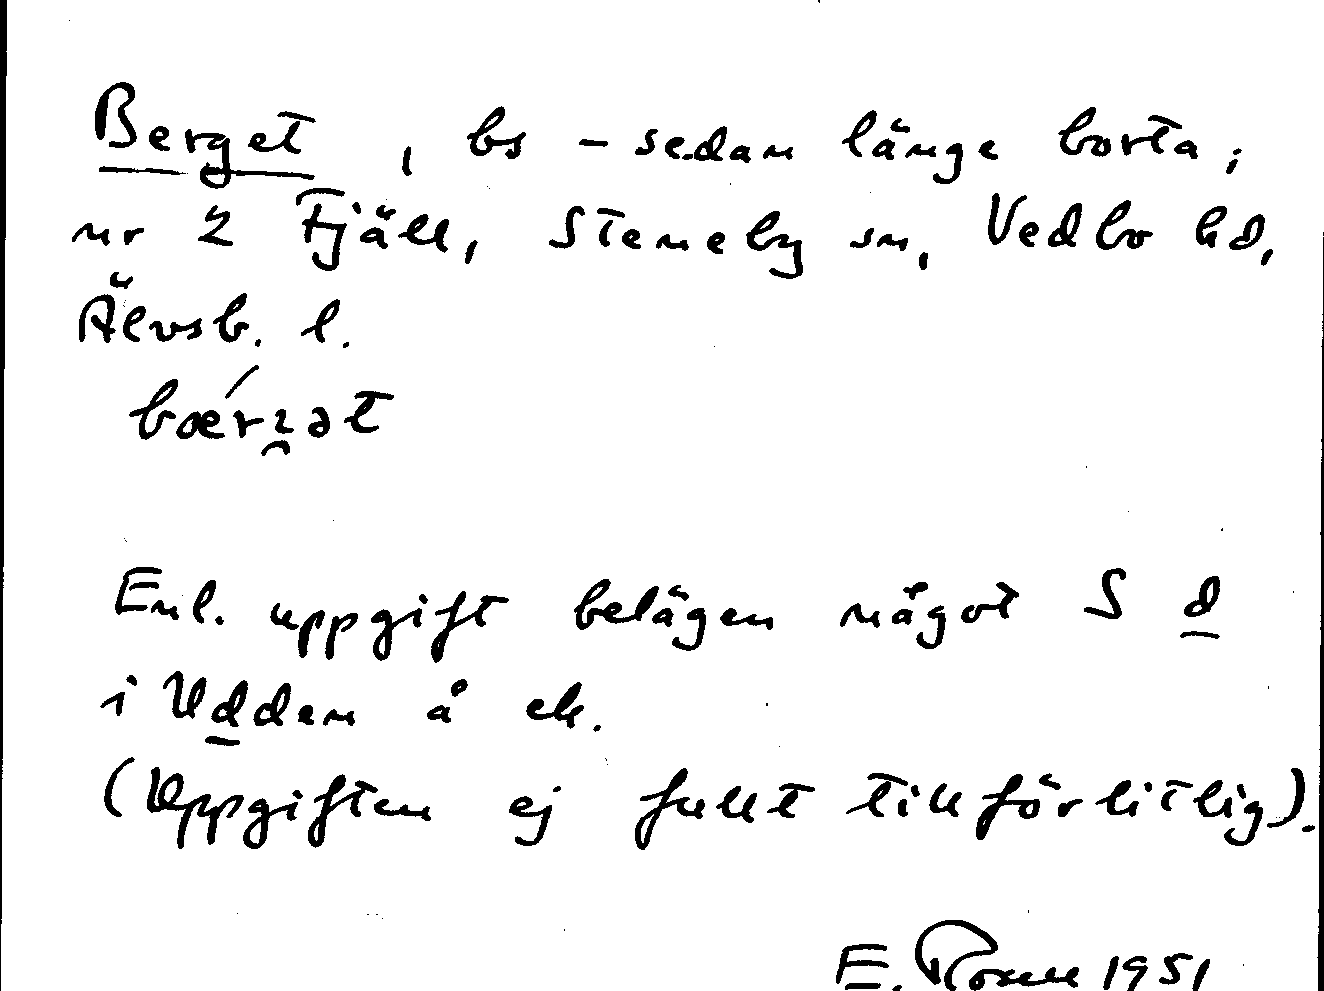 Berget, bs – sedan länge borta;
nr 2 Fjäll, Steneby sn, Vedbo hd,
Älvsb. l.
Enl. uppgift belägen något S d
i Udden å ek.
(Uppgiften ej fullt tillförlitlig).
E. 1951